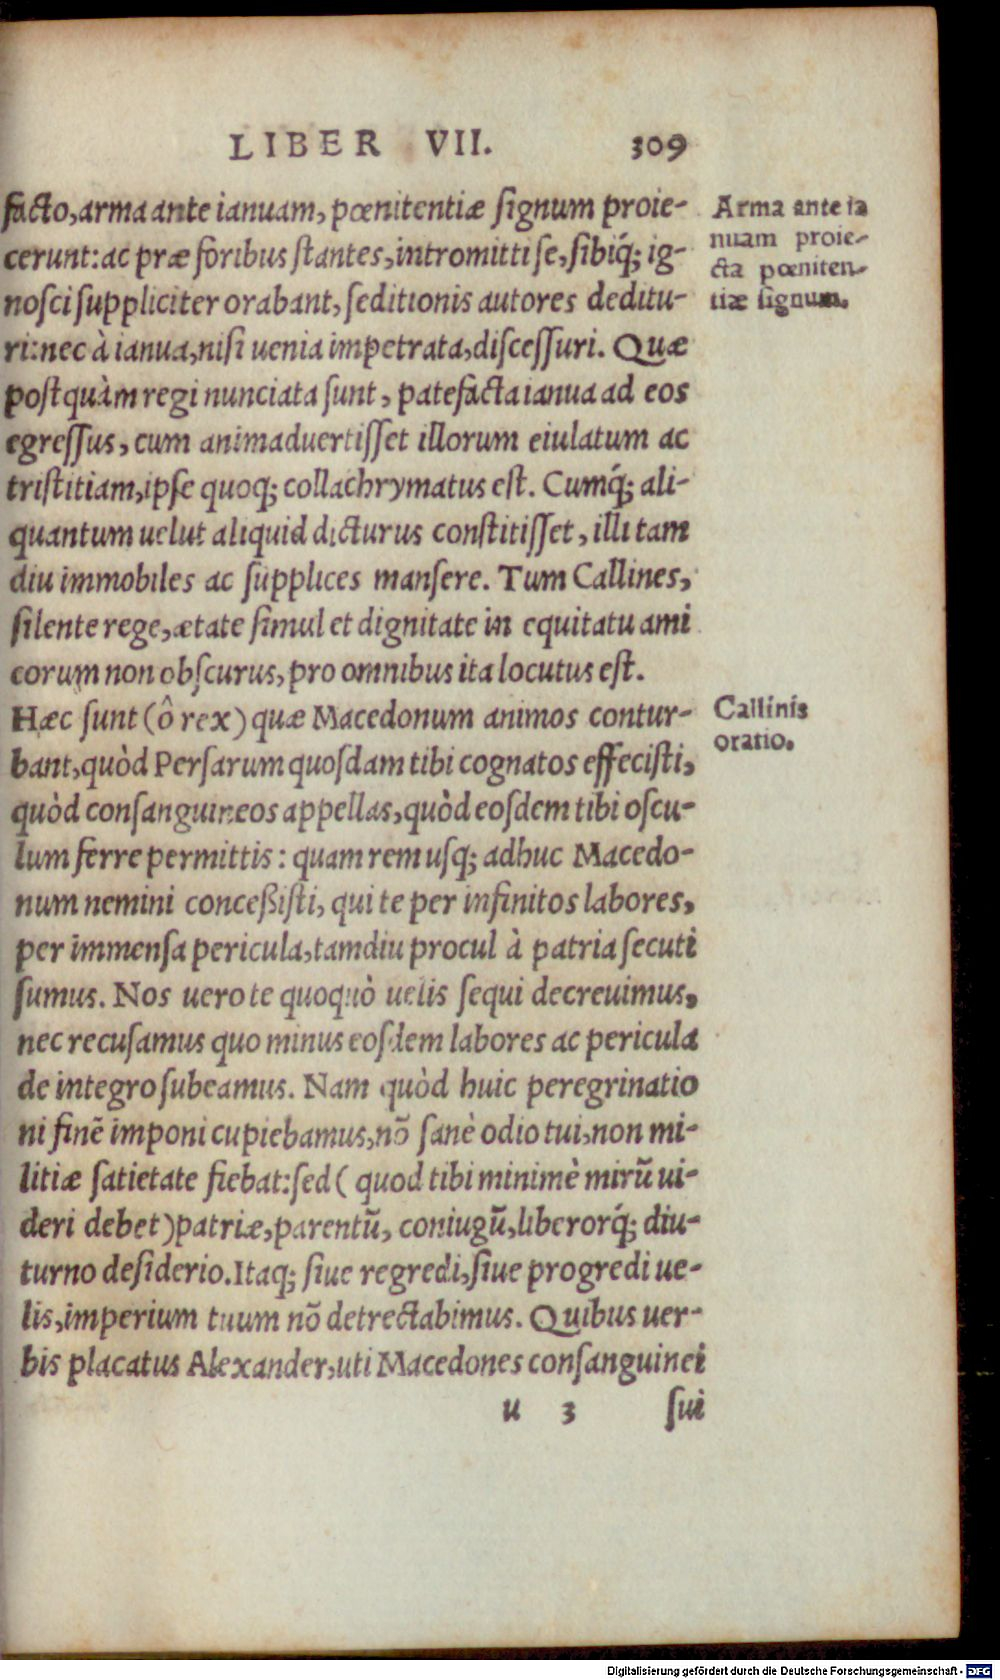 LIBER VII. 309
facto, arma ante ianuam, pœnitentiæ ſignum proie-
cerunt: ac præ foribus ſtantes, intromitti ſe, ſibiq́; ig-
noſci ſuppliciter orabant, ſeditionis autores deditu-
ri: nec à ianua, niſi uenia impetrata, diſceſſuri. Quæ
poſtquàm regi nunciata ſunt, patefacta ianua ad eos
egreſſus, cum animaduertiſſet illorum eiulatum ac
triſtitiam, ipſe quoq; collachrymatus eſt. Cumq́; ali-
quantum uelut aliquid dicturus conſtitiſſet, illi tam
diu immobiles ac ſupplices manſere. Tum Callines,
ſilente rege, ætate ſimul et dignitate in equitatu ami
corum non obſcurus, pro omnibus ita locutus eſt.
Hæc ſunt (ô rex) quæ Macedonum animos contur-
bant, quòd Perſarum quoſdam tibi cognatos effeciſti,
quòd conſanguineos appellas, quòd eoſdem tibi oſcu-
lum ferre permittis: quam rem uſq; adhuc Macedo-
num nemini conceßiſti, qui te per infinitos labores,
per immenſa pericula, tamdiu procul à patria ſecuti
ſumus. Nos uero te quoquò uelis ſequi decreuimus,
nec recuſamus quo minus eoſdem labores ac pericula
de integro ſubeamus. Nam quòd huic peregrinatio
ni finẽ imponi cupiebamus, nõ ſanè odio tui, non mi-
litiæ ſatietate fiebat: ſed ( quod tibi minimè mirũ ui-
deri debet) patriæ, parentũ, coniugũ, liberorq́; diu-
turno deſiderio. Itaq; ſiue regredi, ſiue progredi ue-
lis, imperium tuum nõ detrectabimus. Quibus uer-
bis placatus Alexander, uti Macedones conſanguinei
u 3 ſui
Arma ante ia
nuam proie-
cta pœniten-
tiæ ſignum.
Callinis
oratio.
Digitalisierung gefördert durch die Deutsche Forschungsgemeinschaft - DFG